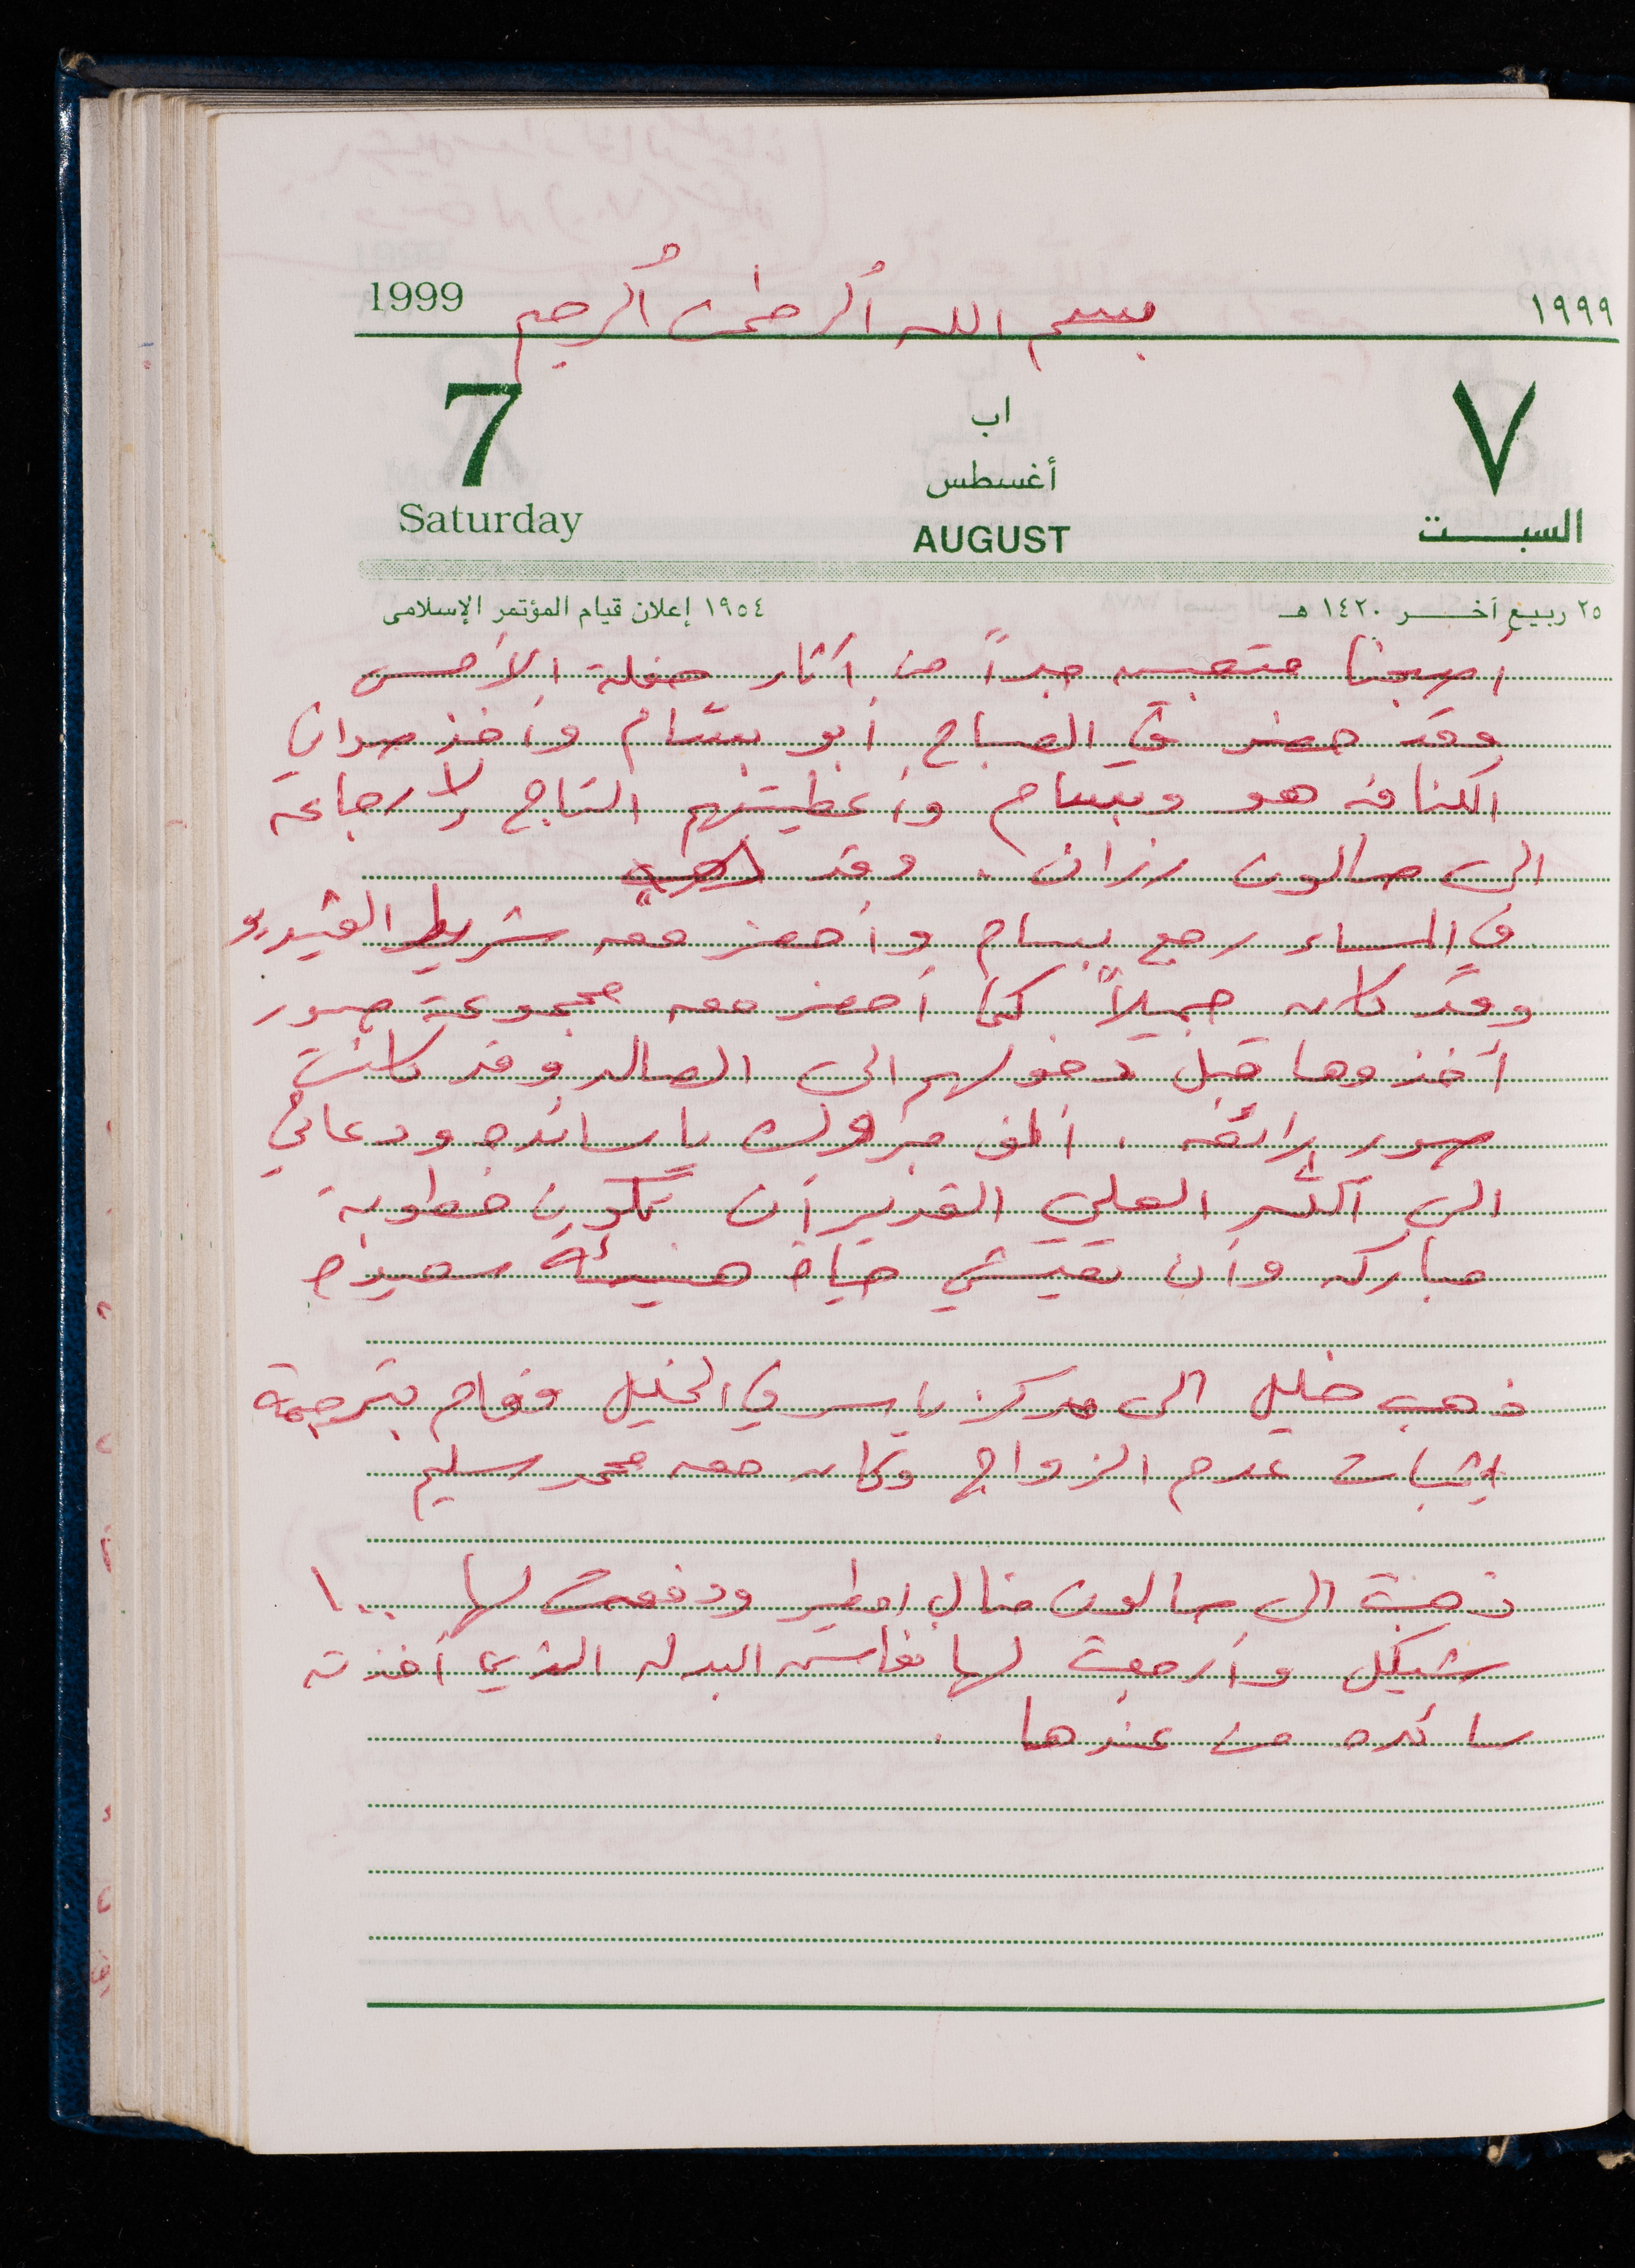 1999 بسم الله الرحمن الرحيم ١٩٩٩
7 اب ٧
أغسطس
Saturday AUGUST السبت
٢٥ ربيع آخر ١٤٢٠ هـ ١٩٥٤ إعلان قيام المؤتمر الإسلامى
أصبحنا متعبين جداً من آثار حفلة الأمس
وقد حضر في الصباح أبو بسّام وأخذ صواني
الكنافه هو وبسام وأعطيتهم التاج لارجاعه
الى صالون رزان . وقد
في المساء رجع بسام وأحضر معه شريط الفيديو
وقد كان جميلاً كما أحضر معه مجموعة صور
أخذوها قبل دخولهم الى الصاله وقد كانت
صور رائعه . ألف مبروك يا سائده ودعائي
الى الله العلي القدير أن تكون خطوبة
مباركه وأن تعيشي حياة هنيئة سعيدة
ذهب خليل الى مركز ياسر في الخليل وقام بترجمة
إثبات عدم الزواج وكان معه محمد سليم
ذهبت الى صالون منال امطير ودفعت لها ١٠٠
شيكل وأرجعت لها نفاش البدله الذي أخذته
سائده من عندها .